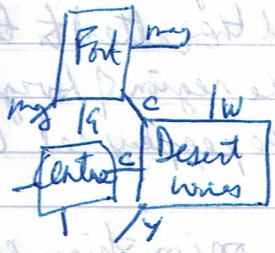 Fort
mg
mg
/G
C
/W
Centro
C
Desert
wires
/Y